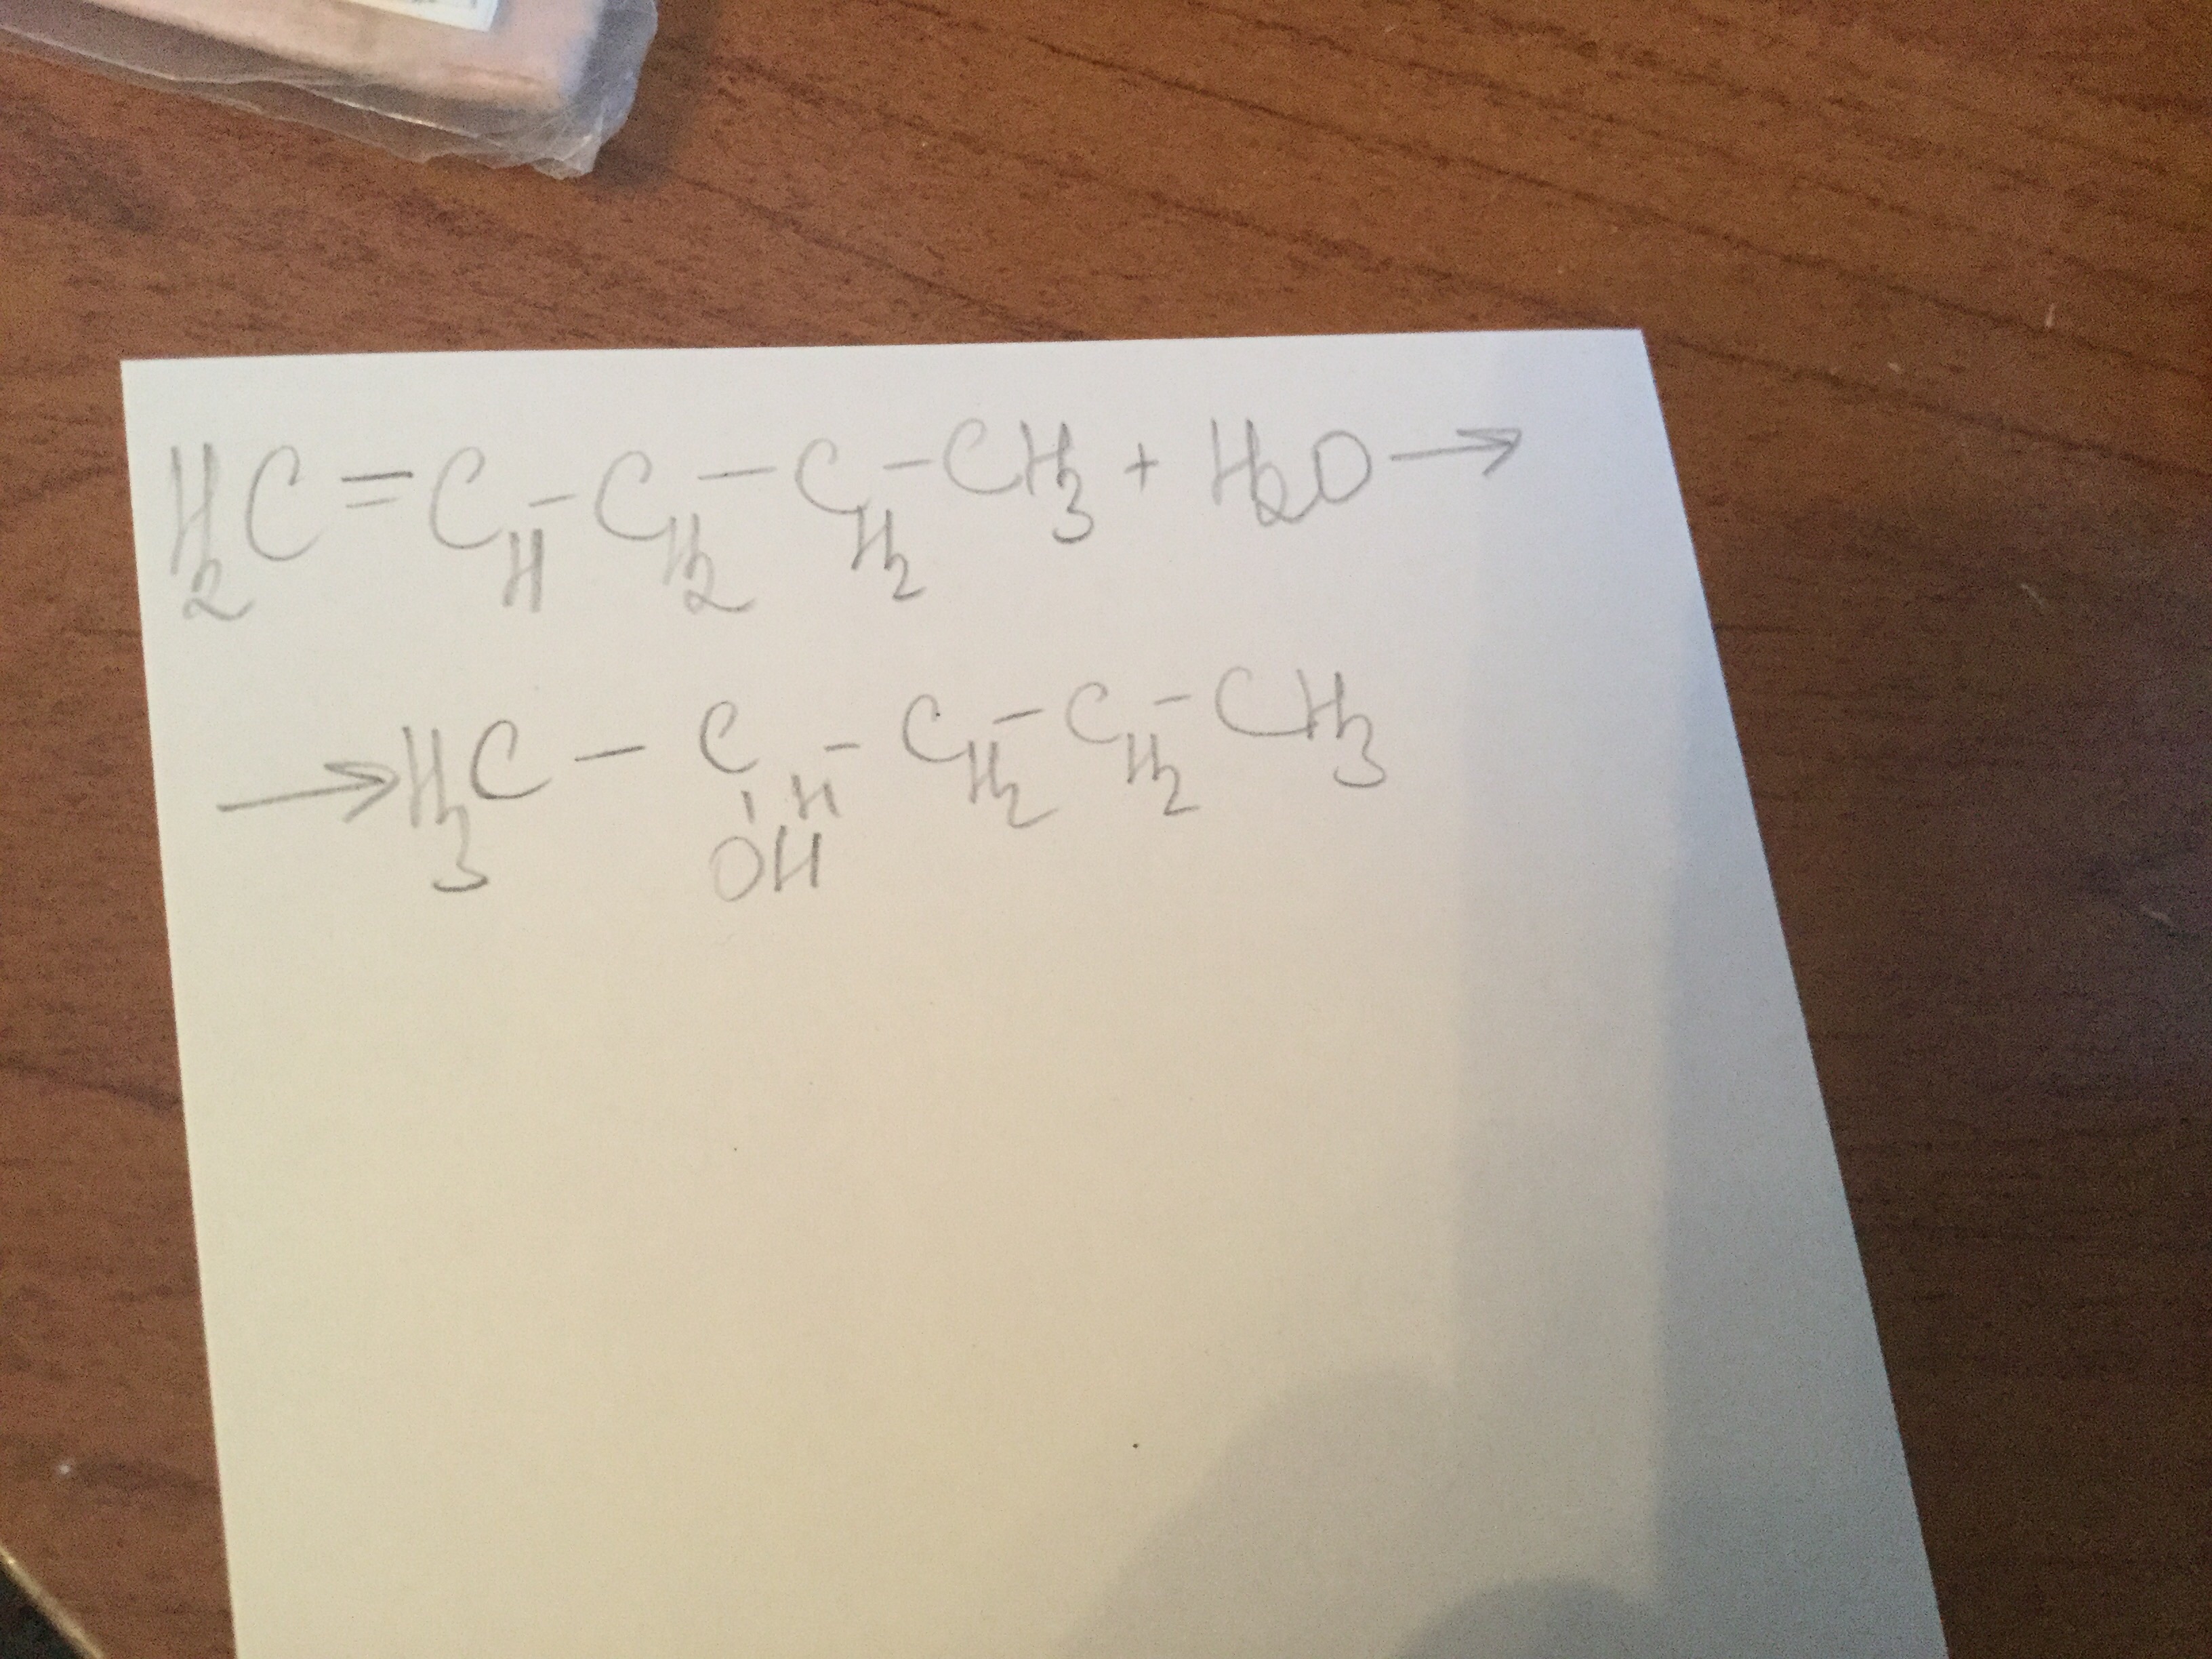 H₂C=CH-CH₂-CH₂-CH₃ + H₂O →
→ H₃C - CH - CH₂ - CH₂ - CH₃
OH